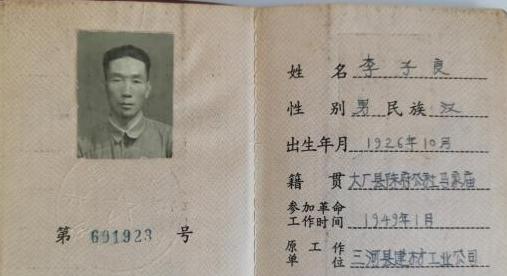 第 691923 号
姓名 李子良
性别 男 民族 汉
出生年月 1926年10月
籍贯 大厂县陈府公社马家庙
参加革命
工作时间 1949年1月
原工作
单位 三河县建材工业公司